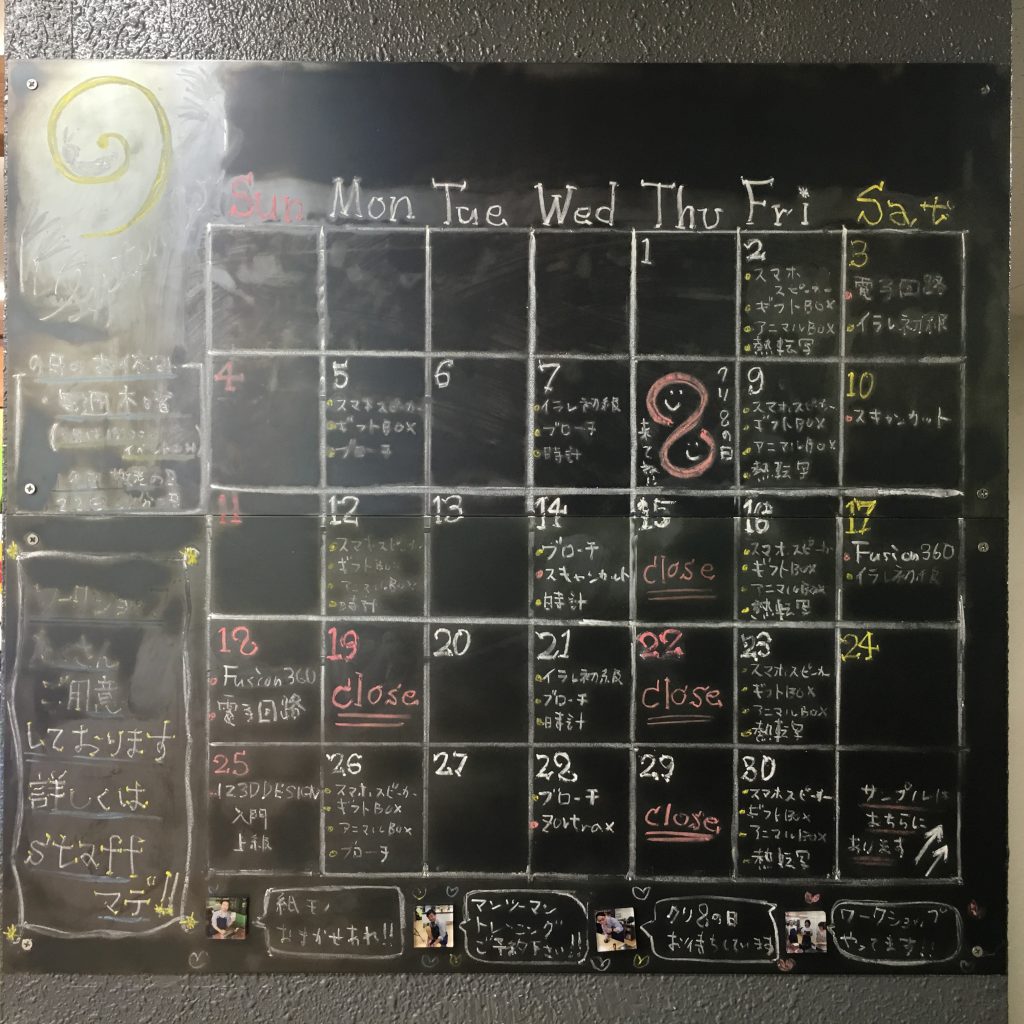 9
Sun Mon Tue Wed Thu Fri Sat
1
2
スマホ
スピーカー
ギフトBOX
アニマルBOX
熱転写
3
電子回路
イラレ初級
4
5
スマホスピーカー
ギフトBOX
ブローチ
6
7
イラレ初級
ブローチ
時計
8
クリ8の日
9
スマホスピーカー
ギフトBOX
アニマルBOX
熱転写
10
スキャンカット
11
12
スマホスピーカー
ギフトBOX
アニマルBox
時計
13
14
ブローチ
スキャンカット
時計
15
close
16
スマホスピーカー
ギフトBox
アニマルBox
熱転写
17
Fusion360
イラレ初級
18
Fusion360
電子回路
19
close
20
21
イラレ初級
ブローチ
時計
22
close
23
スマホスピーカー
ギフトBOX
アニマルBOX
熱転写
24
25
123DDESIGN
入門
上級
26
スマホスピーカー
ギフトBOX
アニマルBox
ブローチ
27
28
ブローチ
Zortrax
29
close
30
スマホスピーカー
ギフトBOX
アニマルBOX
熱転写
サンプルは
こちらに
あります
9月のお休み
毎週木曜
ワークショップ
たくさん
ご用意
しております
詳しくは
staff
マデ!!
紙モノ
おまかせあれ!!
マンツーマン
トレーニング
ご予約下さい!!
クリ8の日
お待ちしています
ワークショップ
やってます!!